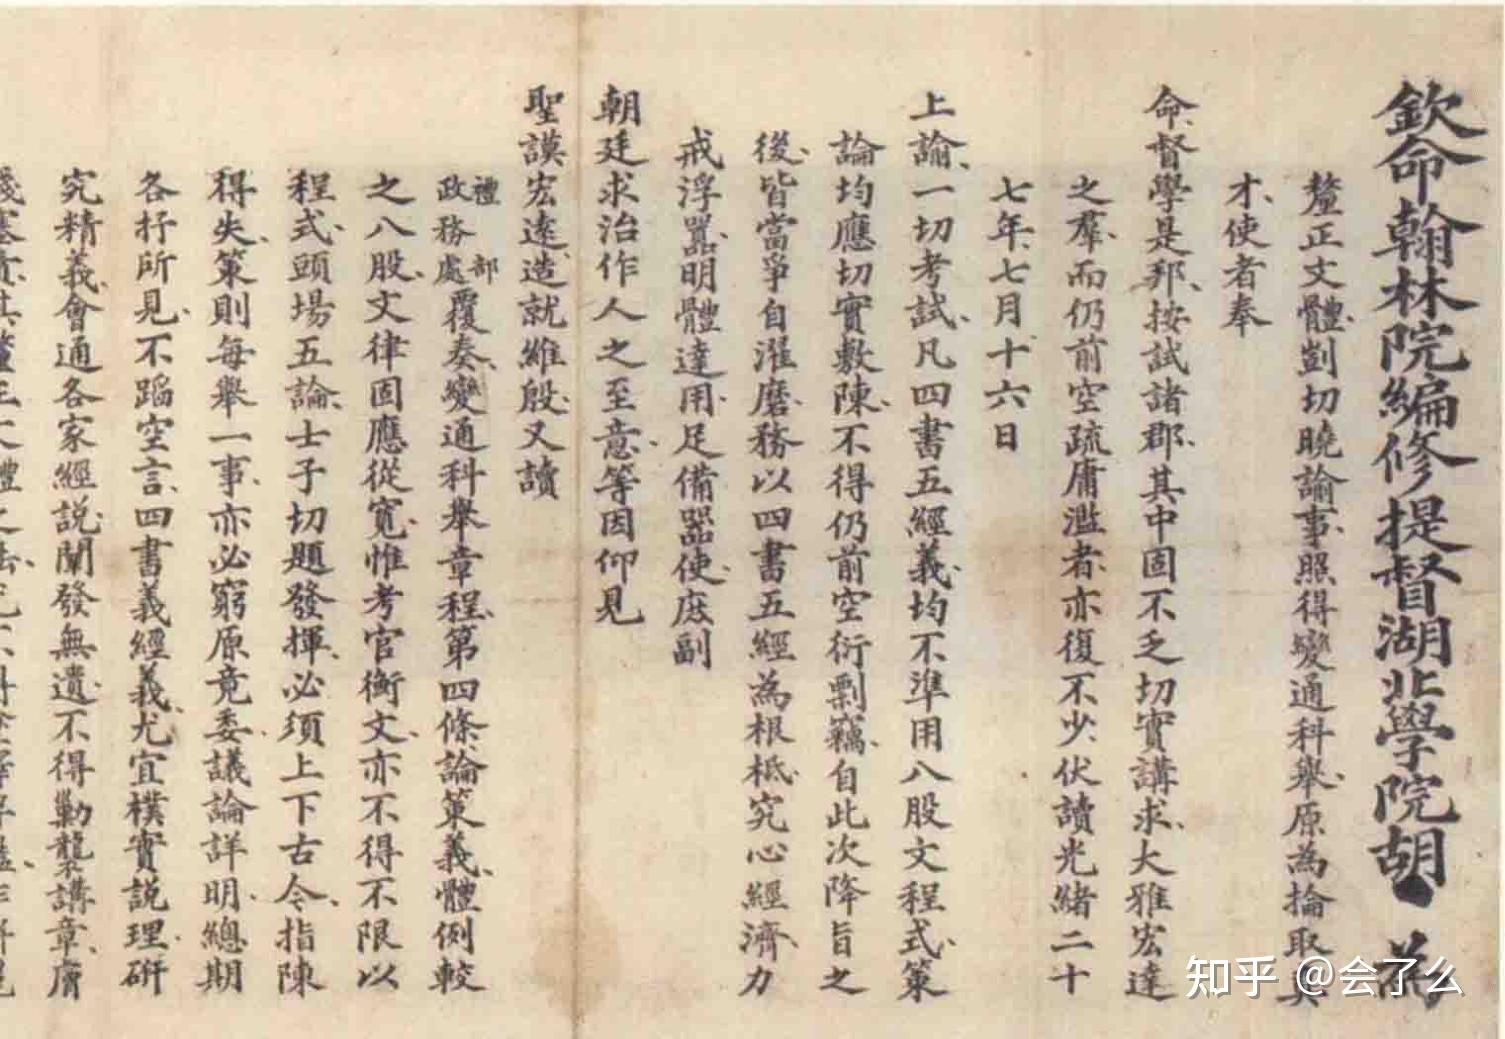 欽命翰林院編修提督湖北學院胡 為
釐正文體、剴切曉諭事、照得變通科舉、原為掄取真
才、使者奉
命、督學是邦、按試諸郡、其中固不乏切實講求、大雅宏達
之羣、而仍前空疏庸濫者、亦復不少、伏讀光緒二十
七年、七月十六日
上諭、一切考試、凡四書五經義、均不準用八股文程式、策
論均應切實敷陳、不得仍前空衍剽竊、自此次降旨之
後、皆當爭自濯磨、務以四書五經為根柢、究心經濟、力
戒浮囂、明體達用、足備器使、庶副
朝廷求治作人之至意、等因、仰見
聖謨宏遠、造就維殷、又讀
禮部政務處覆奏、變通科舉章程、第四條論策義、體例較
之八股、文律固應從寬、惟考官衡文、亦不得不限以
程式、頭場五論、士子切題發揮、必須上下古今、指陳
得失、策則每舉一事、亦必窮原竟委、議論詳明、總期
各抒所見、不蹈空言、四書義經義、尤宜樸實說理、研
究精義、會通各家經說、闡發無遺、不得勦襲講章、膚
知乎 @会了么